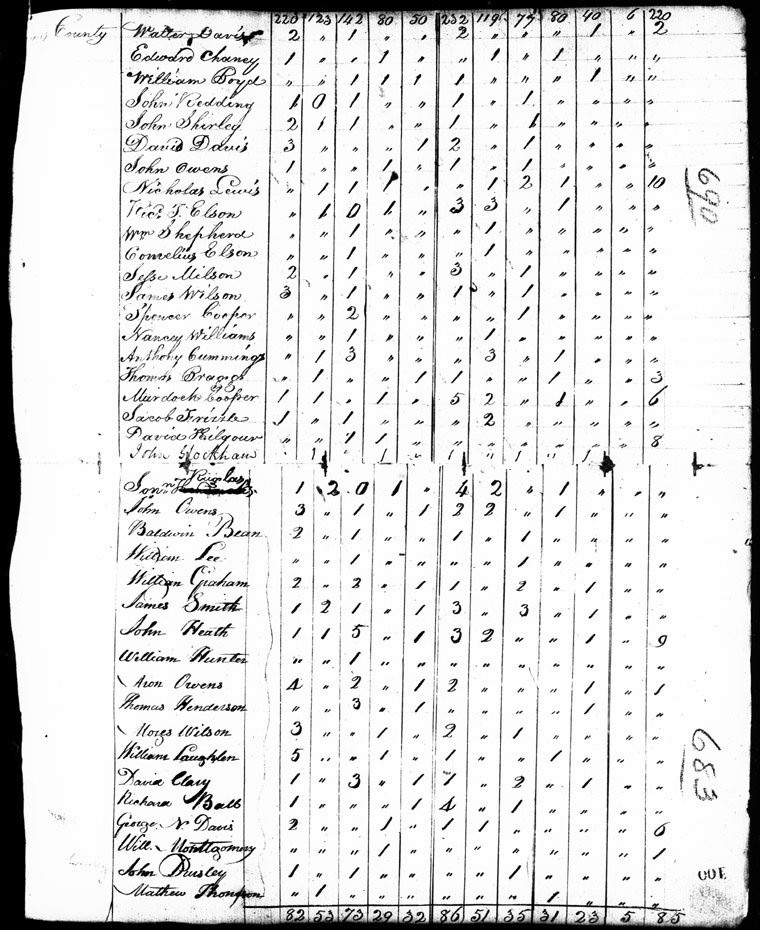 220 123 142 80 50 232 119 75 80 40 6 220
County Walter Davis 2 " 1 " " 2 " " " 1 " 2
Edward Chaney 1 " " 1 " " 1 " 1 " " "
William Boyd " " 1 1 1 1 " " " 1 " "
John Redding 1 0 1 " " 1 " 1 " " " "
John Shirley 2 1 1 " " " " 1 " " " "
David Davis 3 " " " 1 2 " 1 " " " "
John Owens 1 " " 1 " 1 " 1 " " " "
Nicholas Lewis " 1 1 1 " " 1 2 1 " " 10
T. Elson " 1 0 1 " 3 3 " 1 " " "
Wm Shepherd " " 1 " " " 1 " " " " "
Cornelius Elson " " 1 " " " 1 " " " " "
Jesse Milson 2 " 1 " " 3 " 1 " " " "
James Wilson 3 " 1 " " 1 " 1 " " " "
Spencer Cooper " " 2 " " " " 1 " " " "
Nancy Williams " " 1 " " " 1 " " " " "
Anthony Cummings " 1 3 " " " 3 " 1 " " "
Thomas Braggs " 1 " " 1 1 " " 1 " " 3
Murdoch Cooper 1 1 " 1 " 5 2 " 1 " " 6
Jacob 1 " 1 " " " 2 " " " " "
David Kilgour " " 1 1 " " " " " " " 8
John Stockham
690
Nicholas 1 2 0 1 " 4 2 " 1 " " "
John Owens 3 " 1 " 1 2 2 " 1 " " "
Baldwin Bean 2 " 1 " " 1 " 1 " " " "
William Lee " " 1 " " " " 1 " " " "
William Graham 2 " 2 " 1 1 " 2 " 1 " "
James Smith 1 2 1 " 1 3 " 3 " 1 " "
John Heath 1 1 5 " 1 3 2 " " 1 " 9
William Hunter " " 1 " " " " " " " " "
Aron Owens 4 " 2 " 1 2 " " " 1 " 1
Thomas Henderson " " 3 " 1 " " " " 1 " "
Moses Wilson 3 " " 1 " 2 " 1 " " " "
William Laughlen 5 " " 1 " 1 " " 1 " " "
David Clary 1 " 3 " 1 1 " 2 " 1 " "
Richard Ball 1 " " " 1 4 " 1 " " " "
George N. Davis 2 " " 1 " 1 1 " " " " 6
Will Montgomery " " " 1 " " " " " " " 1
John 1 " 1 " " " " 1 " " " "
Mathew Thompson " 1 " " " " " " 1 " " "
82 53 73 29 32 86 51 35 31 23 5 85
683